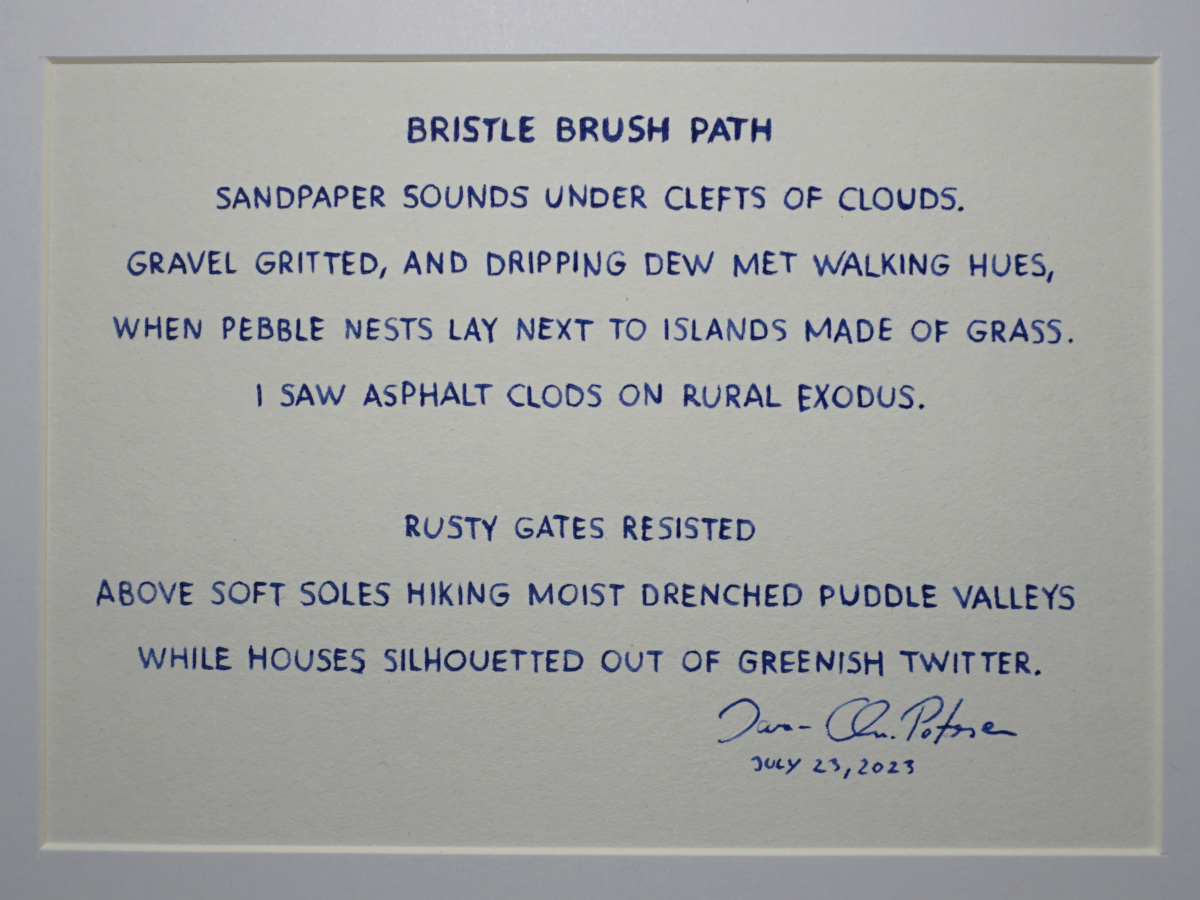 BRISTLE BRUSH PATH
SANDPAPER SOUNDS UNDER CLEFTS OF CLOUDS.
GRAVEL GRITTED, AND DRIPPING DEW MET WALKING HUES,
WHEN PEBBLE NESTS LAY NEXT TO ISLANDS MADE OF GRASS.
I SAW ASPHALT CLODS ON RURAL EXODUS.
RUSTY GATES RESISTED
ABOVE SOFT SOLES HIKING MOIST DRENCHED PUDDLE VALLEYS
WHILE HOUSES SILHOUETTED OUT OF GREENISH TWITTER.
JULY 23, 2023